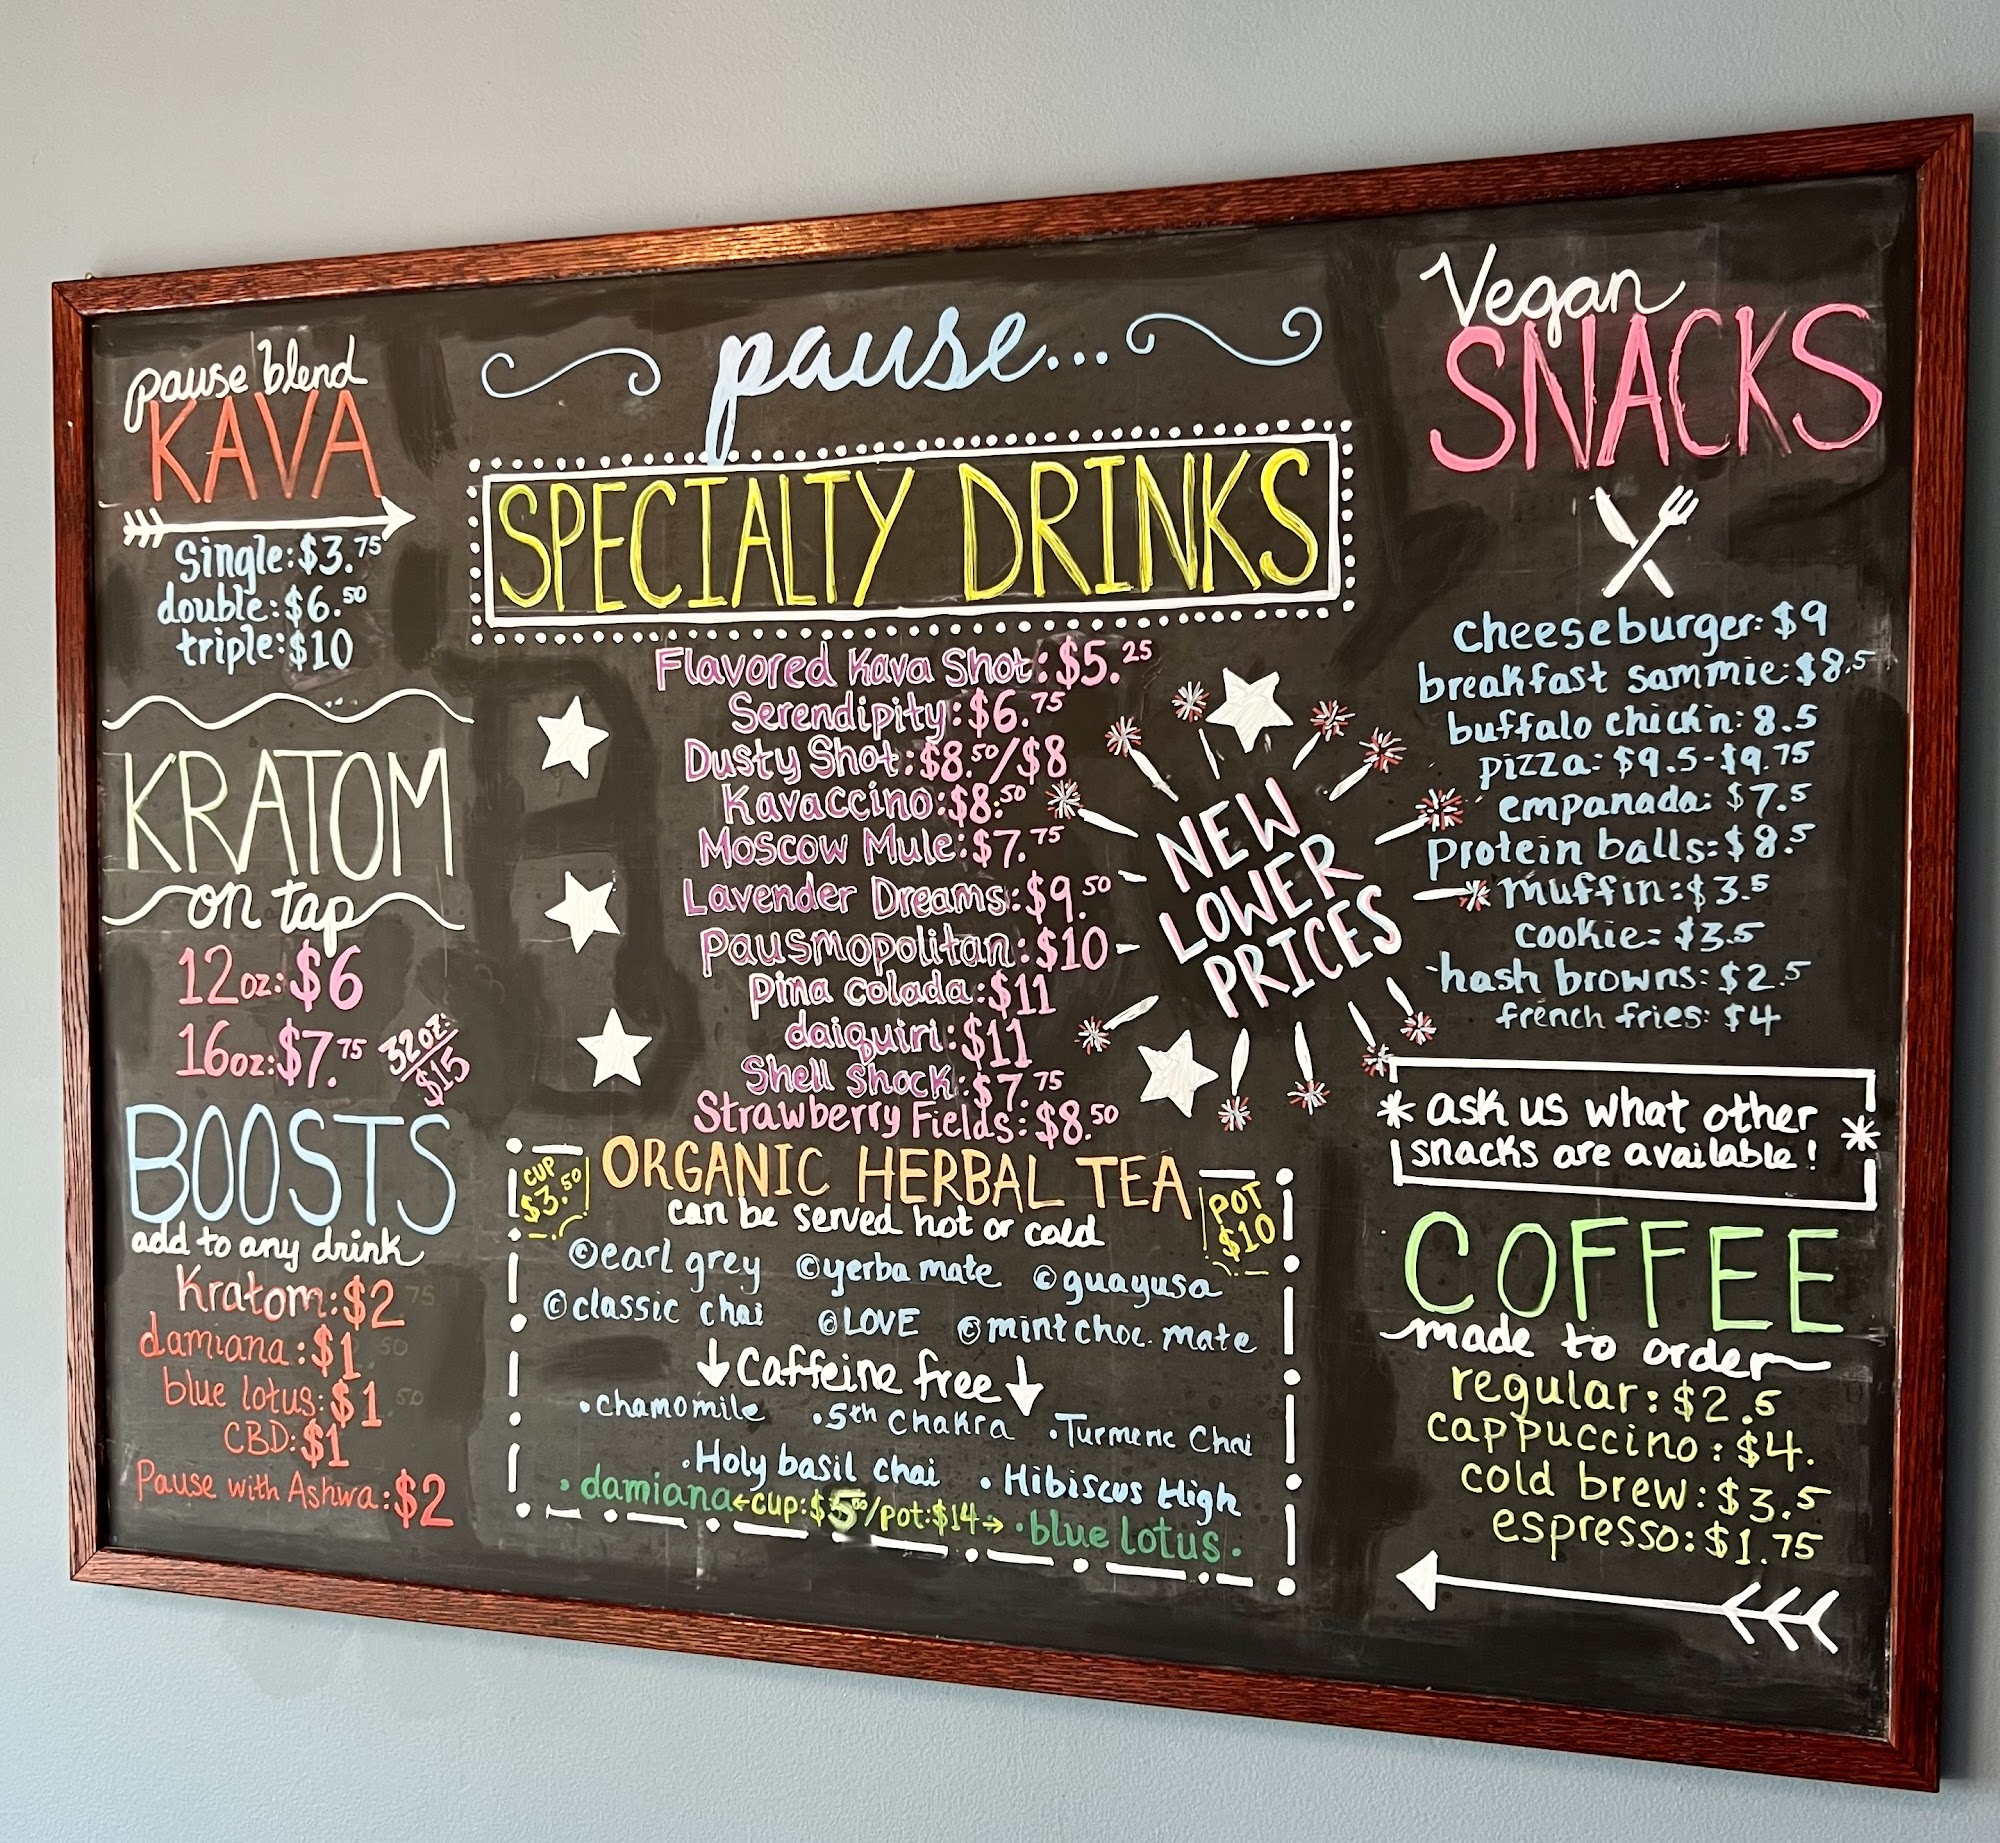 pause blend
KAVA
single: $3.75
double: $6.50
triple: $10
KRATOM
on tap
12oz: $6
16oz: $7.75
32oz:
$15
BOOSTS
add to any drink
Kratom: $2.75
damiana: $1.50
blue lotus: $1.50
CBD: $1
Pause with Ashwa: $2
pause...
SPECIALTY DRINKS
Flavored Kava Shot: $5.25
Serendipity: $6.75
Dusty Shot: $8.50/$8
Kavaccino: $8.50
Moscow Mule: $7.75
Lavender Dreams: $9.50
Pausmopolitan: $10
Pina colada: $11
daiquiri: $11
Shell Shock: $7.75
Strawberry Fields: $8.50
NEW
LOWER
PRICES
CUP
$3.50
ORGANIC HERBAL TEA
POT
$10
can be served hot or cold
©earl grey ©yerba mate ©guayusa
©classic chai ©LOVE ©mint choc. mate
↓Caffeine free↓
•chamomile •5th Chakra •Turmeric Chai
•Holy basil chai •Hibiscus High
•damiana←cup:$5.00/pot:$14→•blue lotus•
Vegan
SNACKS
cheeseburger: $9
breakfast sammie: $8.5
buffalo chick'n: 8.5
pizza: $9.5-$9.75
empanada: $7.5
protein balls: $8.5
muffin: $3.5
cookie: $3.5
hash browns: $2.5
french fries: $4
* ask us what other *
snacks are available!
COFFEE
made to order
regular: $2.5
cappuccino: $4.
cold brew: $3.5
espresso: $1.75